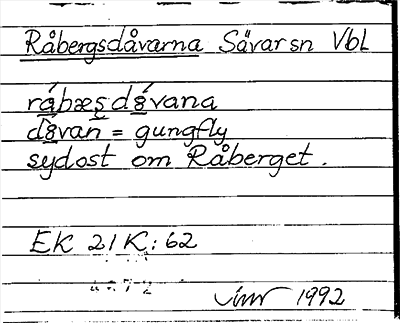 Råbergsdåvarna Sävar sn Vbl
rábæşdǻvana
dåvan = gungfly
sydost om Råberget.
EK 21 K: 62
1992